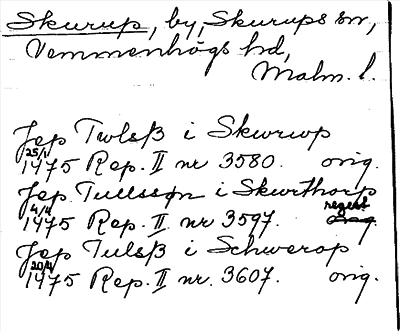 Skurup, by, Skurups sn,
Vemmenhögs hd,
Malm. l.
Jep Twlsß i Skwrwp
25/1 1475 Rep. II nr 3580. orig.
Jep Tullssøn i Skurthorp
4/4 1475 Rep. II nr 3597. regest
Jep Tulsß i Schwerop
20/4 1475 Rep. II nr. 3607. orig.